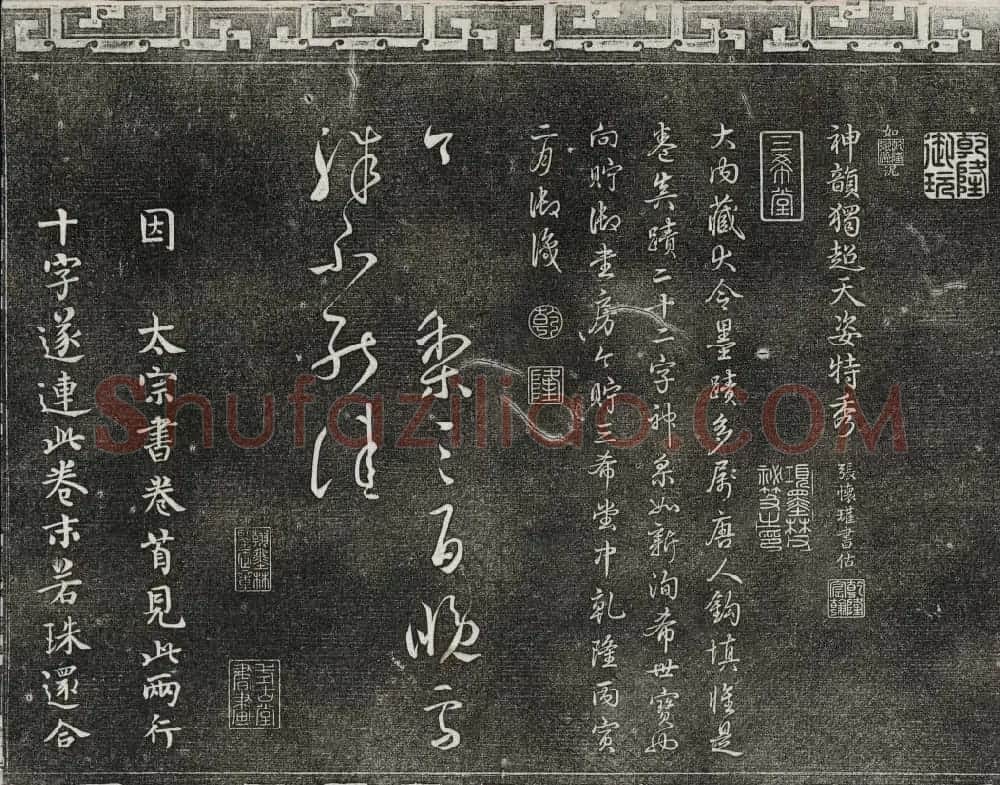 乾隆御玩
神韻獨超天姿特秀 張懷瓘書估
乾隆宸翰
三希堂
項墨林祕笈之印
大內藏大令墨蹟多屬唐人鉤填惟是
卷真蹟二十二字神采如新洵希世寶也
向貯御書房今貯三希堂中乾隆丙寅
二月御識
乾
隆
今 梨三百晚雪
殊不能佳
因 太宗書卷首見此兩行
十字遂連此卷末若珠還合
Shufaziliao.COM